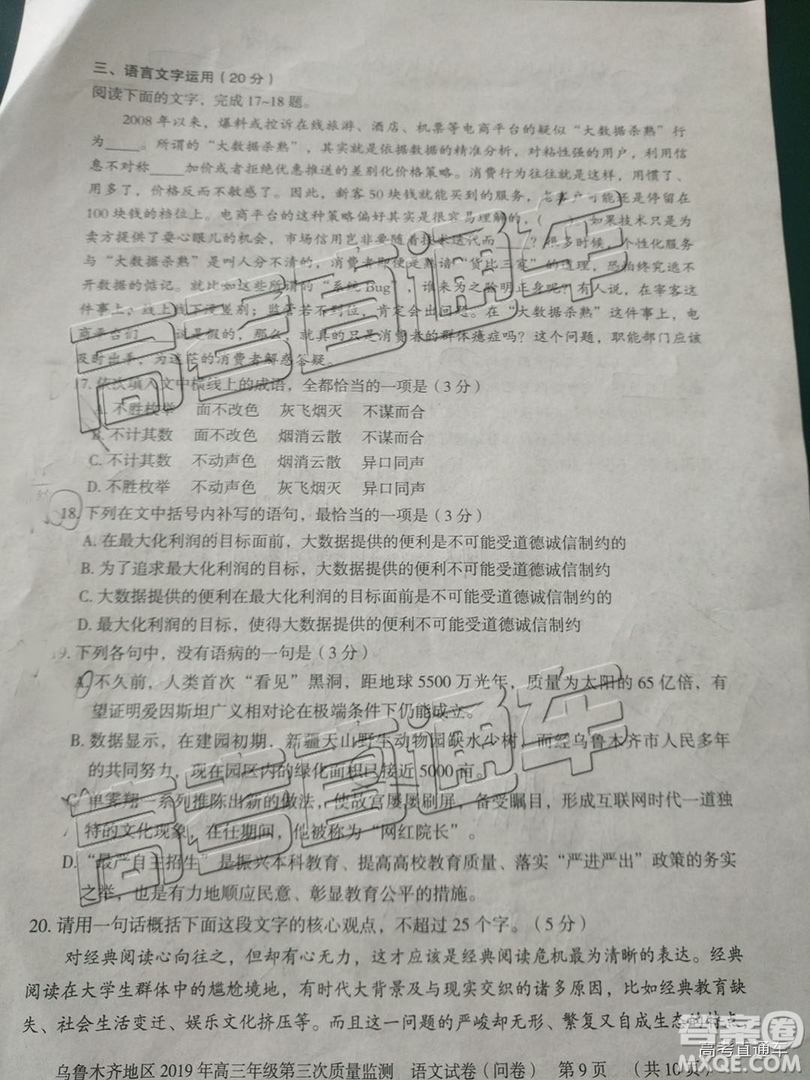 三、语言文字运用（20分）
阅读下面的文字，完成17~18题。
2008年以来，爆料或控诉在线旅游、酒店、机票等电商平台的疑似“大数据杀熟”行
为____。所谓的“大数据杀熟”，其实就是依据数据的精准分析，对粘性强的用户，利用信
息不对称____加价或者拒绝优惠推送的差别化价格策略。消费行为往往就是这样，用惯了、
用多了，价格反而不敏感了。因此，新客50块钱就能买到的服务，老客户可能还是停留在
100块钱的档位上。电商平台的这种策略偏好其实是很容易理解的，（　）。如果技术只是为
卖方提供了耍心眼儿的机会，市场信用岂非要随着技术迭代而____？很多时候，个性化服务
与“大数据杀熟”是叫人分不清的，消费者即便是熟谙“货比三家”的道理，恐怕终究逃不
开数据的惦记。就比如这些所谓的“系统Bug”，谁来为之验明正身呢？有人说，在宰客这
件事上，线上线下没差别；监管若不到位，肯定会出问题。在“大数据杀熟”这件事上，电
商平台们____说是假的，那么，就真的只是消费者的群体癔症吗？这个问题，职能部门应该
及时出手，为迷茫的消费者解惑答疑。
17.依次填入文中横线上的成语，全都恰当的一项是（3分）
A.不胜枚举　面不改色　灰飞烟灭　不谋而合
B.不计其数　面不改色　烟消云散　不谋而合
C.不计其数　不动声色　烟消云散　异口同声
D.不胜枚举　不动声色　灰飞烟灭　异口同声
18.下列在文中括号内补写的语句，最恰当的一项是（3分）
A.在最大化利润的目标面前，大数据提供的便利是不可能受道德诚信制约的
B.为了追求最大化利润的目标，大数据提供的便利不可能受道德诚信制约
C.大数据提供的便利在最大化利润的目标面前是不可能受道德诚信制约的
D.最大化利润的目标，使得大数据提供的便利不可能受道德诚信制约
9.下列各句中，没有语病的一句是（3分）
A.不久前，人类首次“看见”黑洞，距地球5500万光年，质量为太阳的65亿倍，有
望证明爱因斯坦广义相对论在极端条件下仍能成立。
B.数据显示，在建园初期，新疆天山野生动物园缺水少树，而经乌鲁木齐市人民多年
的共同努力，现在园区内的绿化面积已接近5000亩。
C.单霁翔一系列推陈出新的做法，使故宫屡屡刷屏，备受瞩目，形成互联网时代一道独
特的文化现象，在任期间，他被称为“网红院长”。
D.“最严自主招生”是振兴本科教育、提高高校教育质量、落实“严进严出”政策的务实
之举，也是有力地顺应民意、彰显教育公平的措施。
20.请用一句话概括下面这段文字的核心观点，不超过25个字。（5分）
对经典阅读心向往之，但却有心无力，这才应该是经典阅读危机最为清晰的表达。经典
阅读在大学生群体中的尴尬境地，有时代大背景及与现实交织的诸多原因，比如经典教育缺
失、社会生活变迁、娱乐文化挤压等。而这一问题的严峻却无形、繁复又自成生态的特点，
乌鲁木齐地区2019年高三年级第三次质量监测　语文试卷（问卷）　第9页　（共10页）
高考直通车
高考直通车
高考直通车
高考直通车
答案圈
MXQE.COM